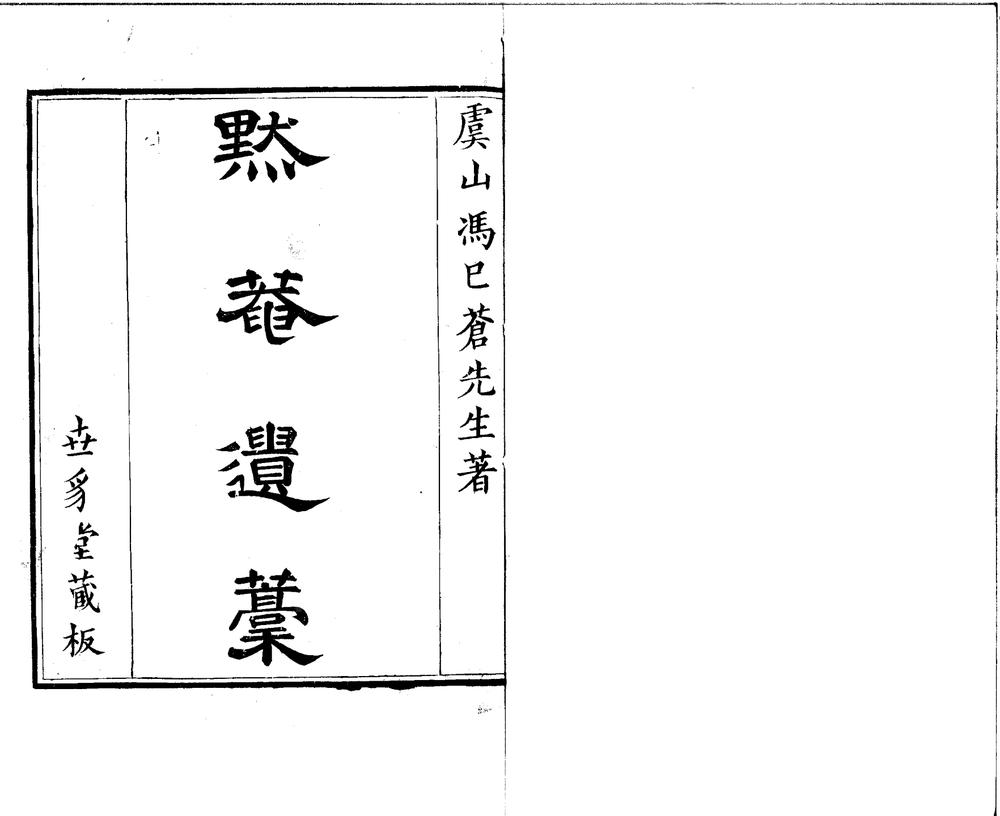 虞山馮巳蒼先生著
默菴遺藁
世豸堂藏板